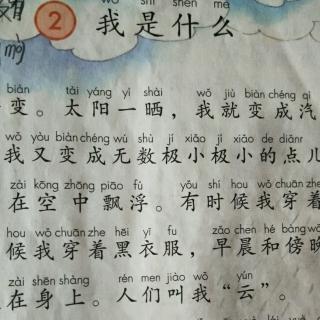 wǒ shì shén me
2 我是什么
biàn tài yáng yí shài wǒ jiù biàn chéng qì
变。太阳一晒，我就变成汽
wǒ yòu biàn chéng wú shù jí xiǎo jí xiǎo de diǎnr
我又变成无数极小极小的点儿
zài kōng zhōng piāo fú yǒu shí hou wǒ chuān zhe
在空中飘浮。有时候我穿着
hou wǒ chuān zhe hēi yī fu zǎo chen hé bàng wǎ
候我穿着黑衣服，早晨和傍晚
zài shēn shàng rén men jiào wǒ yún
在身上。人们叫我“云”。